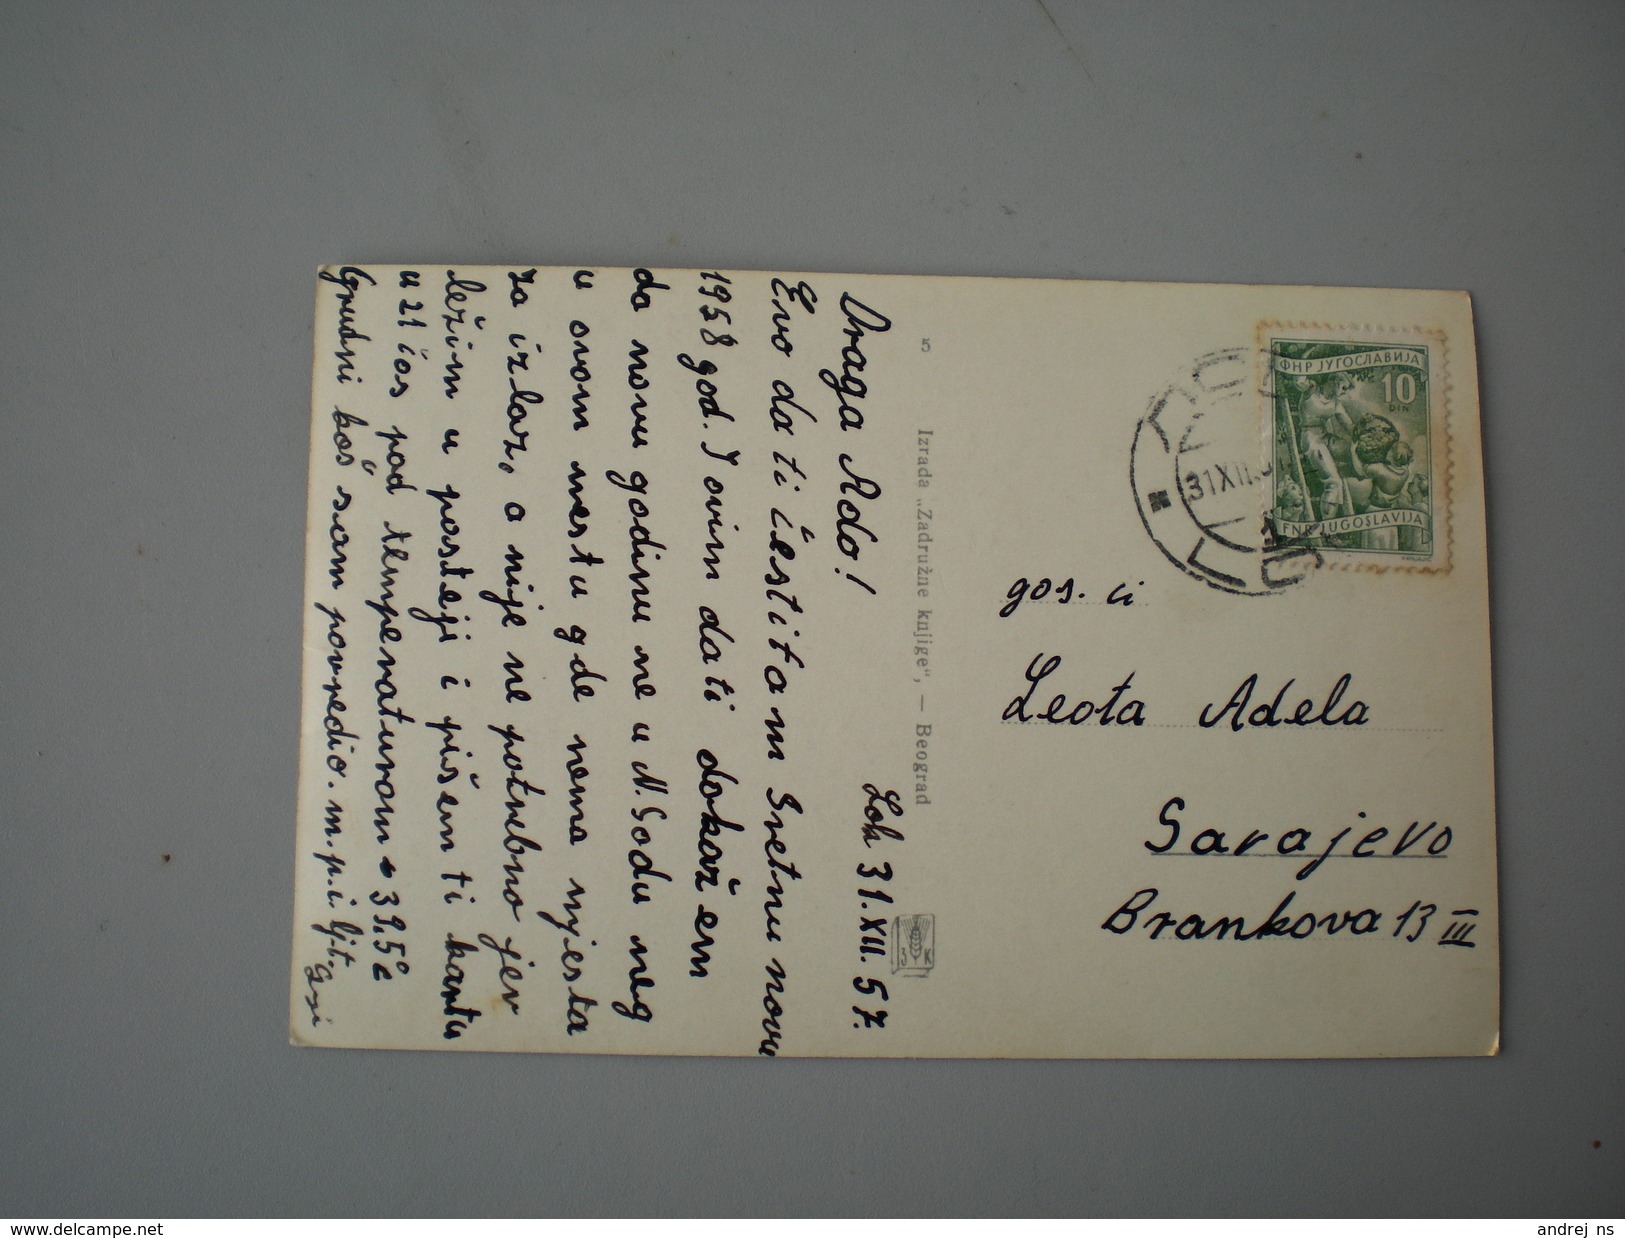 Draga Ado!
Lok 31.XII.57.
Evo da ti čestitam Sretnu novu
1958 god. I ovim da ti dokažem
da novu godinu ne u N. Sadu neg
u ovom mestu gde nema mjesta
za izlaz, a nije ne potrebno jer
ležim u postelji i pišem ti kartu
u 21 čas pod temperaturom 39,5°C
Grudni koš sam povredio. m.p.i. ljt.
5
Izrada „Zadružne knjige“, — Beograd
З K
ФНР ЈУГОСЛАВИЈА
10
DIN
FNR JUGOSLAVIJA
31 XII
gos. ci
Leota Adela
Sarajevo
Brankova 13 III
www.delcampe.net
andrej_ns